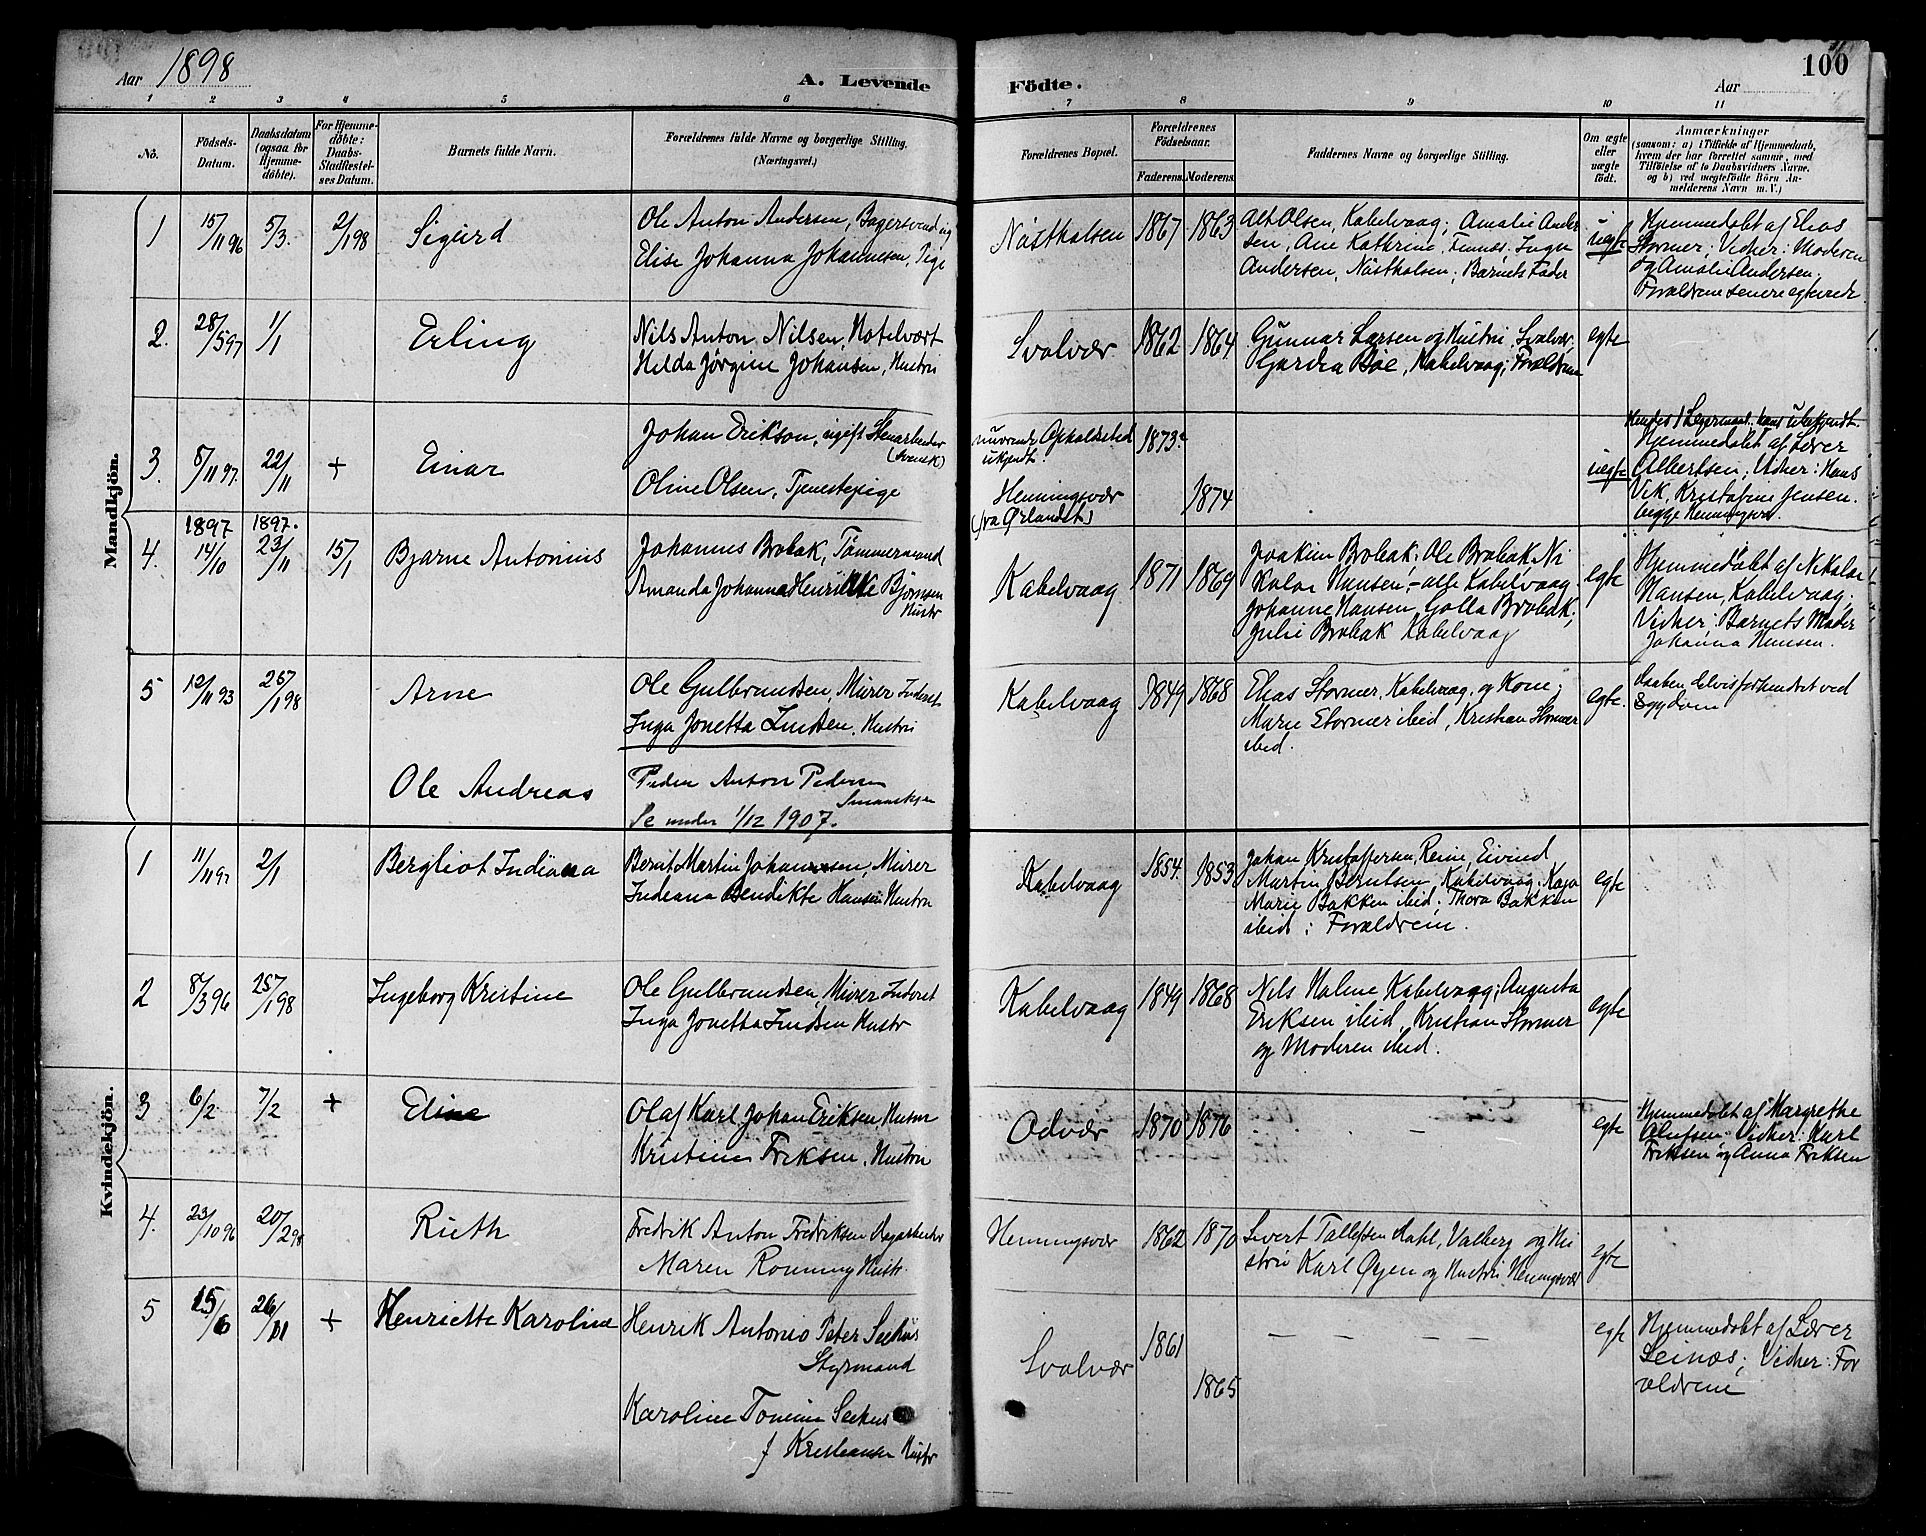 Aar 1898
A. Levende Födte.
Aar
100
1 2 3 4 5 6 7 8 9 10 11
No.
Födsels-Datum.
Daabsdatum (ogsaa for Hjemme-döbte).
For Hjemme-döbte: Daabs-Stadfestel-ses Datum.
Barnets fulde Navn.
Forældrenes fulde Navne og borgerlige Stilling. (Næringsvei.)
Forældrenes Bopæl.
Forældrenes Födselsaar.
Faderens. Moderens.
Faddernes Navne og borgerlige Stilling.
Om ægte eller uægte födt.
Anmærkninger
(saasom: a) i Tilfælde af Hjemmedaab, hvem der har forrettet samme, med Tilföielse af to Daabsvidners Navne, og b) ved uægtefödte Börn An-melderens Navn m. V.)
Mandkjön.
1 15/11 96 5/3. 2/1 98 Sigurd
Ole Anton Andersen, Bagersvend
Elise Johanna Johannesen, Pige
Næstholsen 1867 1863
Alt Olsen, Kabelvaag; Amalie Ander
sen, Ane Kathrine Finnæs; Inga
Andersen, Næstholsen; Barnets Fader
uegte
Hjemmedøbt af Elias
Stormer; Vidner: Moderen
og Amalie Andersen.
Forældrene senere egteviede
2. 28/5 97 1/1 Erling
Nils Anton Nilsen, Hotelvært
Hilda Jörgine Johansen, Hustru
Svolvær 1862 1864
Gunnar Larsen og Hustru, Svolvær,
Bøe, Kabelvaag; Forældrene
egte
3. 8/11 97. 22/11 + Einar
Johan Erikson, ugift Stenarbeider
(Svensk)
Oline Olsen, Tjenestepige
nuværende Opholdssted
ukjendt.
Henningsvær
(fra Ørlandet)
1873? 1874
uegte
Hendes 1 Leiermaal, hans ubekjendt.
Hjemmedøbt af Lærer
Albertsen; Vidner: Hans
Vik, Kristofine Jensen.
begge Henningsvær.
4. 1897 14/10 1897. 23/11 15/1 Bjarne Antonius
Johannes Brobak, Tømmermand
Amanda Johanna Henrikke Björnsen
Hustr
Kabelvaag 1871 1869
Joakim Brobak; Ole Brobak Ni
kolai Hansen, - alle Kabelvaag
Johanne Hansen, Golla Brobak,
Julie Brobak Kabelvaag
egte
Hjemmedøbt af Nikolai
Hansen, Kabelvaag;
Vidner: Barnets Moder
Johanna Hansen.
5 12/11 93 25/1 98 Arne
Ole Gulbrandsen, Murer Inderøt
Inga Jonetta Knudsen, Hustru
Kabelvaag 1849 1868
Elias Stormer, Kabelvaag, og Kone;
Marie Stormer ibid, Kristian Stormer
ibid.
egte.
Daaben delvis forhindret ved
Sygdom
Ole Andreas
Peder Anton Pedersen
Se under 1/12 1907.
Kvindekjön.
1 11/11 97 2/1 Bergliot Indiana
Bernt Martin Johannesen, Murer
Indiana Bendikte Hansen Hustru
Kabelvaag 1854. 1853
Johan Kristoffersen, Reine, Eivind
Martin Berntsen, Kabelvaag, Kaja
Marie Bakken ibid; Thora Bakken
ibid; Forældrene.
egte
2 8/3 96 25/1 98 Ingeborg Kristine
Ole Gulbrandsen, Murer Inderøt
Inga Jonetta Knudsen Hustr
Kabelvaag 1849 1868
Nils Holme Kabelvaag; Augusta
Eriksen ibid, Kristian Stormer
og Moderen ibid.
egte
3 6/2 7/2 + Eline
Olaf Karl Johan Eriksen Husm
Kristine Eriksen, Hustru
Odvær 1870 1876 -
egte
Hjemmedøbt af Margrethe
Olufsen; Vidner: Karl
Eriksen og Anna Eriksen
4. 23/10 96 20/2 98 Ruth
Fredrik Anton Fredriksen Dagarbeider
Maren Rønning Hustr.
Henningsvær 1862 1870
Sivert Tollefsen Dahl, Valberg og Hu
stru Karl Øyen og Hustru Henningsvær
egte
5 15/6 26/11 + Henriette Karoline
Henrik Antonio Peter Seehus
Styrmand
Karoline Tomine Seehus
f Kristiansen Hustr
Svolvær 1861 1865 - - - -
egte
Hjemmedøbt af Lærer
Leinæs; Vidner: For
ældrene